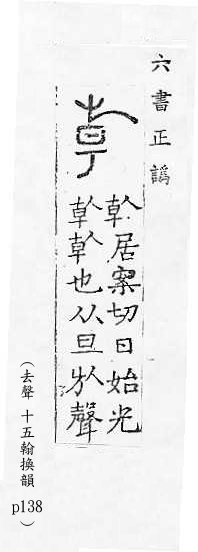 六書正譌
倝居案切日始光
倝倝也从旦㫃聲
（去聲 十五翰換韻 p138）